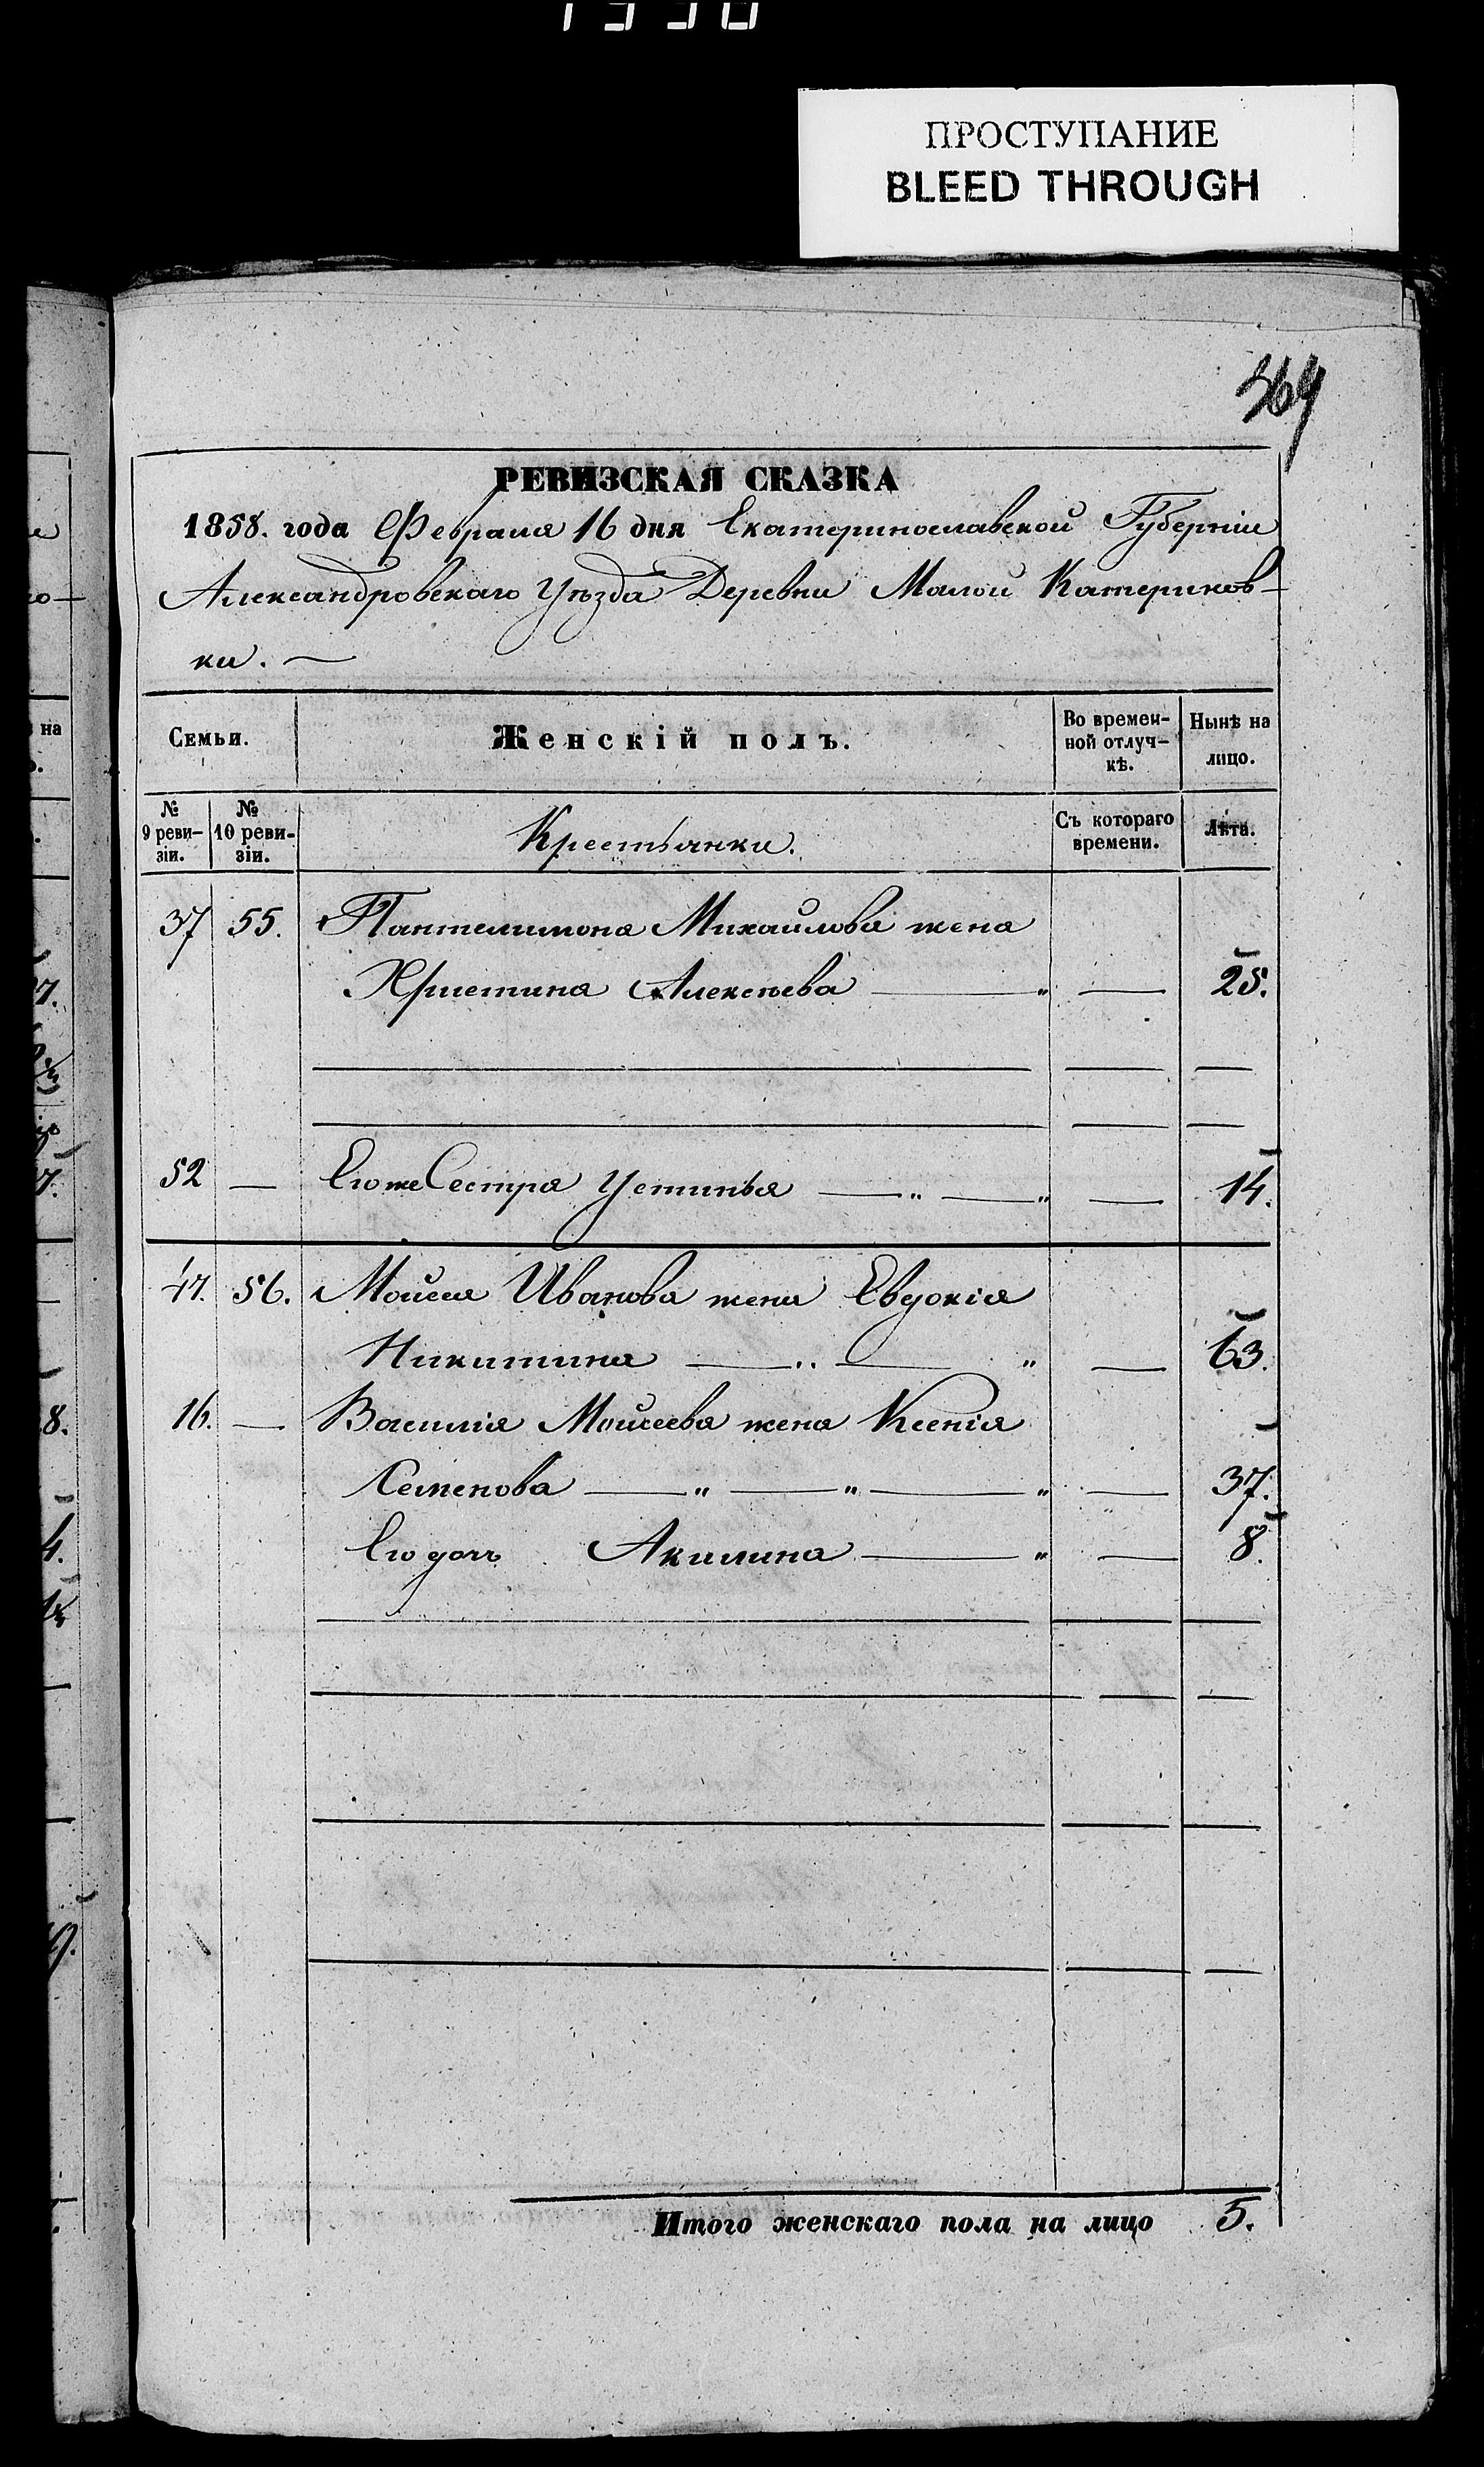 ПРОСТУПАНИЕ
BLEED THROUGH
369
РЕВИЗСКАЯ СКАЗКА
1858. года Февраля 16 дня Екатеринославской Губерніи
Александровскаго Уѣзда Деревни Малой Катеринов-
ки. —
Семьи. Женскій полъ. Во времен-ной отлуч-кѣ. Нынѣ на лицо.
№ 9 реви-зіи. № 10 реви-зіи. Крестьянки. Съ котораго времени. Лѣта.
37 55. Пантелимона Михайлова жена
Христина Алексѣева — " — 25.
52 — Его же Сестра Устинья — " — " — 14.
47. 56. Моисея Иванова жена Евдокія
Никитина — " — " — 63.
16. — Василія Моисеева жена Ксенія
Семенова — " — " — " — 37.
Его дочь Акилина — " — 8.
Итого женскаго пола на лицо 5.